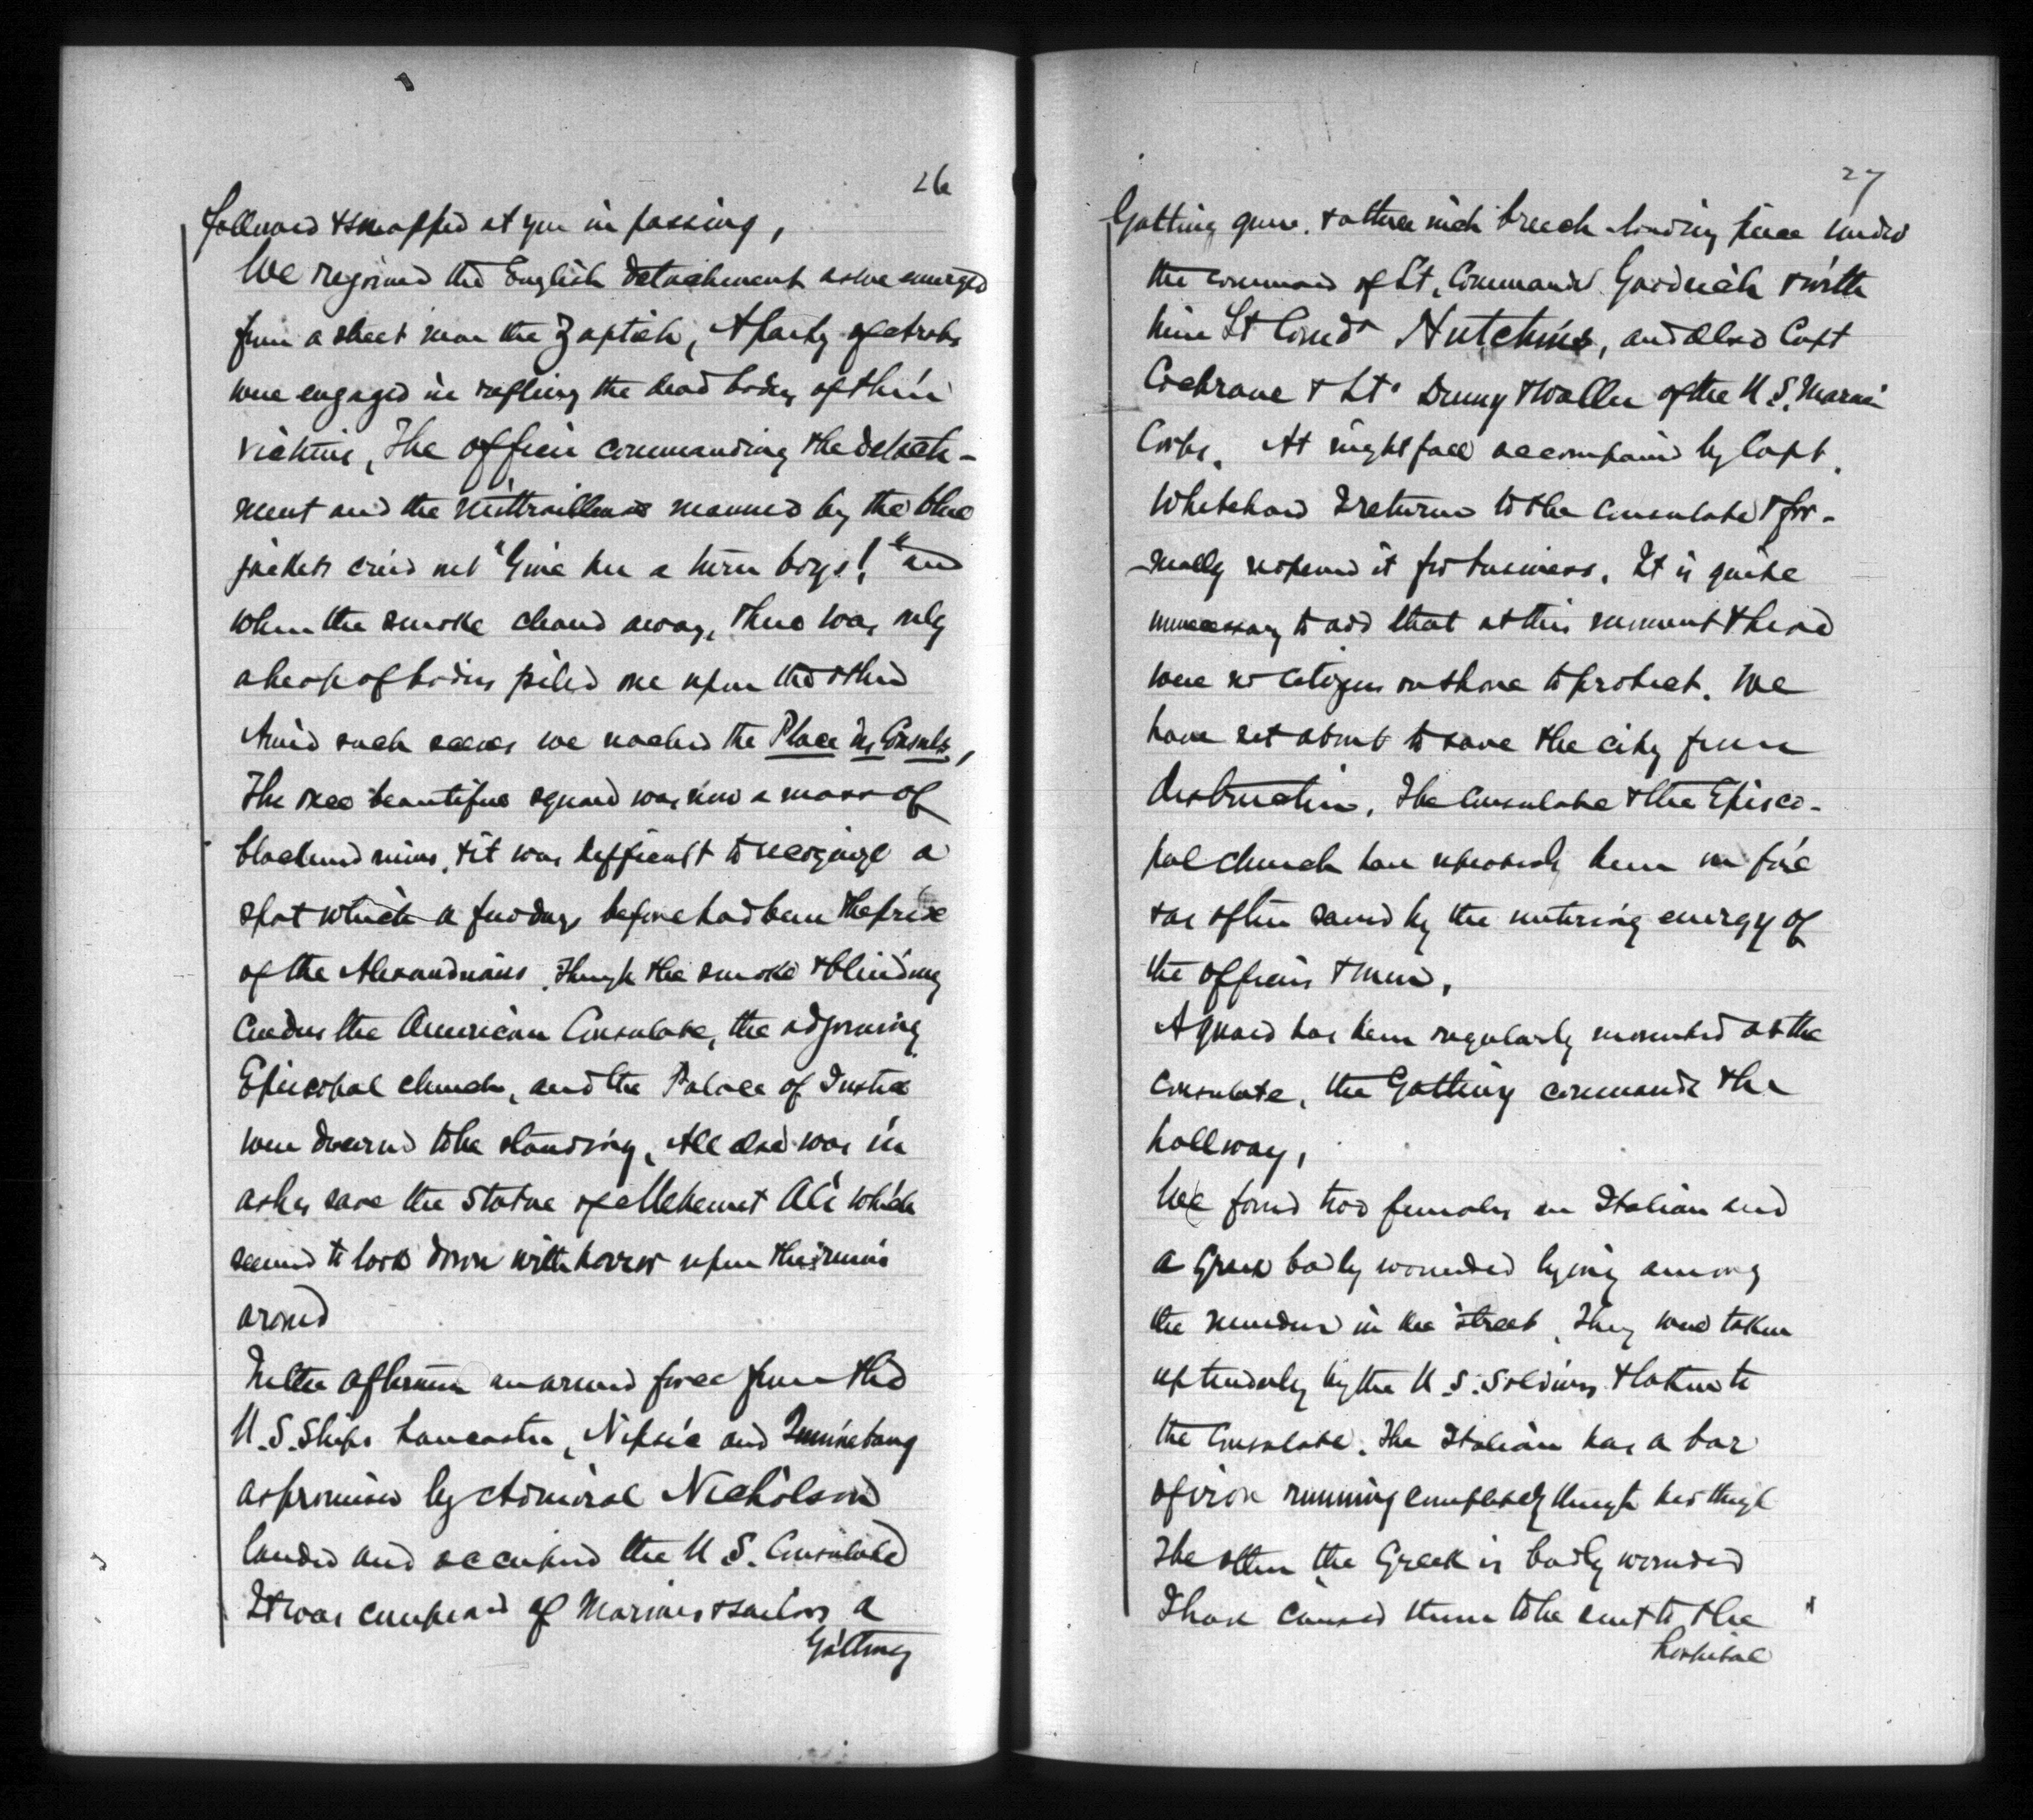 26
followed & snapped at you in passing,
We rejoined the English detachment as we emerged
from a street near the Zaptieh, A party of Arabs
were engaged in rifling the dead bodies of their
victims, The officer commanding the detach-
ment and the mittrailleuse manned by the blue
jackets cried out "Give her a turn boys!" and
when the smoke cleared away, there was only
a heap of bodies piled one upon the other
Amid such scenes we reached the Place des Consuls,
The once beautiful square was now a mass of
blackened ruins, & it was difficult to recognize a
spot which a few days before had been the pride
of the Alexandrians. Through the smoke & blinding
cinders the American Consulate, the adjoining
Episcopal church, and the Palace of Justice
were discerned to be standing, All else was in
ashes save the statue of Mehemet Ali which
seemed to look down with horror upon the ruins
around
In the afternoon an armed force from the
U.S. Ships Lancaster, Nipsic and Quinnebaug
as promised by Admiral Nicholson
landed and occupied the U.S. Consulate
It was composed of Marines & sailors a
Gatling
27
Gatling gun. & a three inch breech-loading piece under
the command of Lt. Commander Goodrich & with
him Lt Comdr Hutchins, and also Capt
Cochrane & Lts Denny & Waller of the U.S. Marine
Corps. At nightfall accompanied by Capt.
Whitehead I returned to the Consulate & for-
mally reopened it for business. It is quite
unnecessary to add that at this moment there
were no citizens on shore to protect. We
have set about to save the city from
destruction. The Consulate & the Episco-
pal church have repeatedly been on fire
& as often saved by the untiring energy of
the officers & men,
A guard has been regularly mounted at the
Consulate, the Gatling commands the
hallway,
We found two females an Italian and
a Greek badly wounded lying among
the in the street. They were taken
up tenderly by the U.S. Soldiers & taken to
the Consulate. The Italian has a bar
of iron running completely through her thigh
The other the Greek is badly wounded
I have caused them to be sent to the
hospital